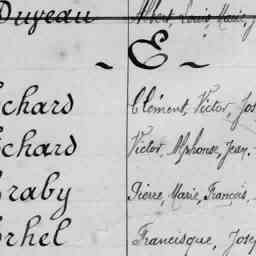 Duveau Albert Louis Marie, J
~ E ~
chard Clément, Victor, Jos
chard Victor, Alphonse, Jean.
raby Pierre, Marie, François,
rhel Francisque, Jose